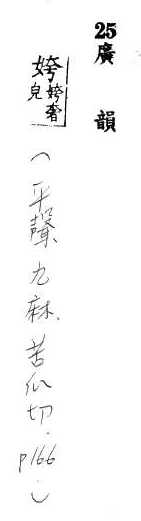 25廣韻
姱姱奢皃
(平聲、九麻.苦瓜切.p166.)